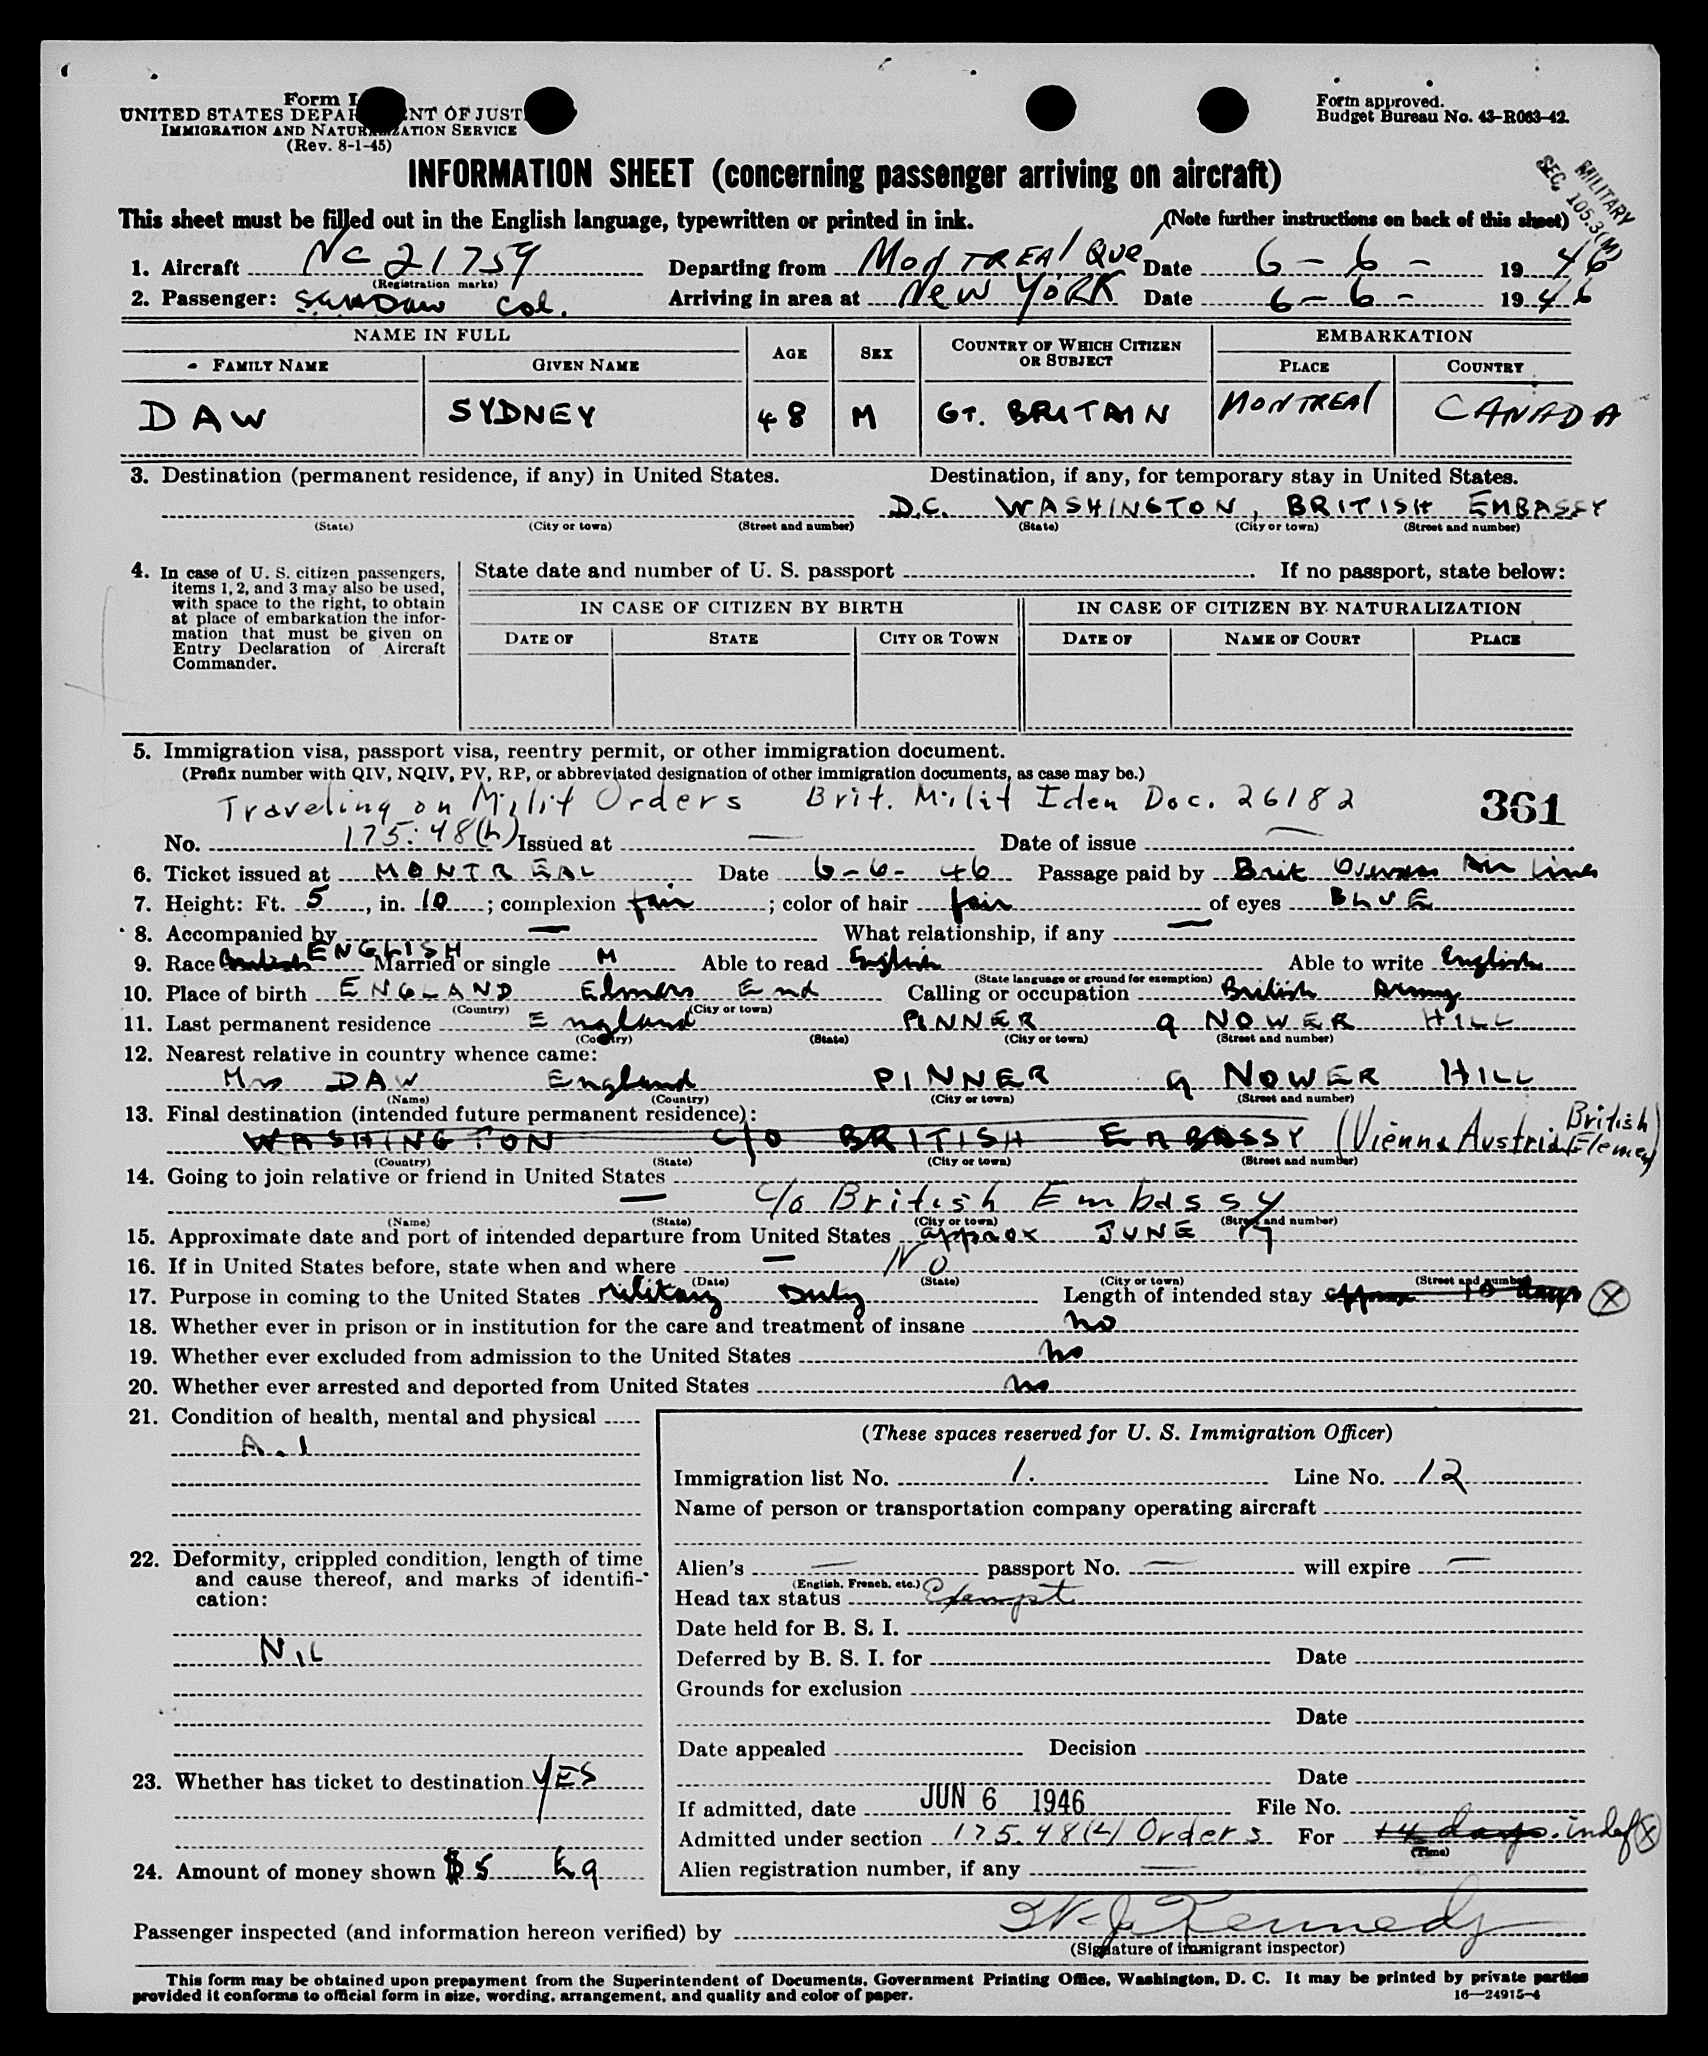 Form I
UNITED STATES DEPAR NT OF JUST
IMMIGRATION AND NATURALIZATION SERVICE
(Rev. 8-1-45)
Form approved.
Budget Bureau No. 43-R063-42.
MILITARY
SEC. 105.3(M)
INFORMATION SHEET (concerning passenger arriving on aircraft)
This sheet must be filled out in the English language, typewritten or printed in ink. (Note further instructions on back of this sheet)
1. Aircraft NC 21759 Departing from MONTREAL QUE Date 6-6- 1946
(Registration marks)
2. Passenger: Daw Col. Arriving in area at NEW YORK Date 6-6- 1946
NAME IN FULL AGE SEX COUNTRY OF WHICH CITIZEN OR SUBJECT EMBARKATION
FAMILY NAME GIVEN NAME PLACE COUNTRY
DAW SYDNEY 48 M GT. BRITAIN MONTREAL CANADA
3. Destination (permanent residence, if any) in United States. Destination, if any, for temporary stay in United States.
D.C. WASHINGTON, BRITISH EMBASSY
(State) (City or town) (Street and number) (State) (City or town) (Street and number)
4. In case of U. S. citizen passengers, items 1, 2, and 3 may also be used, with space to the right, to obtain at place of embarkation the information that must be given on Entry Declaration of Aircraft Commander.
State date and number of U. S. passport . If no passport, state below:
IN CASE OF CITIZEN BY BIRTH IN CASE OF CITIZEN BY NATURALIZATION
DATE OF STATE CITY OR TOWN DATE OF NAME OF COURT PLACE
5. Immigration visa, passport visa, reentry permit, or other immigration document.
(Prefix number with QIV, NQIV, PV, RP, or abbreviated designation of other immigration documents, as case may be.)
Traveling on Milit Orders Brit. Milit Iden Doc. 26182
361
No. 175.48(L) Issued at — Date of issue —
6. Ticket issued at MONTREAL Date 6-6-46 Passage paid by Brit Overseas Air Lines
7. Height: Ft. 5, in. 10; complexion fair; color of hair fair of eyes BLUE
8. Accompanied by — What relationship, if any —
9. Race British ENGLISH Married or single M Able to read English Able to write English
(State language or ground for exemption)
10. Place of birth ENGLAND Elmers End Calling or occupation British Army
(Country) (City or town)
11. Last permanent residence England PINNER 9 NOWER HILL
(Country) (State) (City or town) (Street and number)
12. Nearest relative in country whence came:
Mrs DAW England PINNER 9 NOWER HILL
(Name) (Country) (City or town) (Street and number)
13. Final destination (intended future permanent residence):
WASHINGTON c/o BRITISH EMBASSY (Vienna Austria British Elemen)
(Country) (State) (City or town) (Street and number)
14. Going to join relative or friend in United States
— c/o British Embassy
(Name) (State) (City or town) (Street and number)
15. Approximate date and port of intended departure from United States approx JUNE 17
16. If in United States before, state when and where — NO
(Date) (State) (City or town) (Street and number)
17. Purpose in coming to the United States Military Duty Length of intended stay approx 10 days (X)
18. Whether ever in prison or in institution for the care and treatment of insane no
19. Whether ever excluded from admission to the United States no
20. Whether ever arrested and deported from United States no
21. Condition of health, mental and physical
A.1
22. Deformity, crippled condition, length of time and cause thereof, and marks of identification:
NIL
23. Whether has ticket to destination YES
24. Amount of money shown $5
(These spaces reserved for U. S. Immigration Officer)
Immigration list No. 1. Line No. 12
Name of person or transportation company operating aircraft
Alien's — passport No. — will expire —
(English, French, etc.)
Head tax status Exempt
Date held for B. S. I.
Deferred by B. S. I. for Date
Grounds for exclusion
Date
Date appealed Decision
Date
If admitted, date JUN 6 1946 File No.
Admitted under section 175.48(L) Orders For 14 days. indef (X)
(Time)
Alien registration number, if any —
Passenger inspected (and information hereon verified) by Kennedy
(Signature of immigrant inspector)
This form may be obtained upon prepayment from the Superintendent of Documents, Government Printing Office, Washington, D. C. It may be printed by private parties
provided it conforms to official form in size, wording, arrangement, and quality and color of paper. 16—24915-4